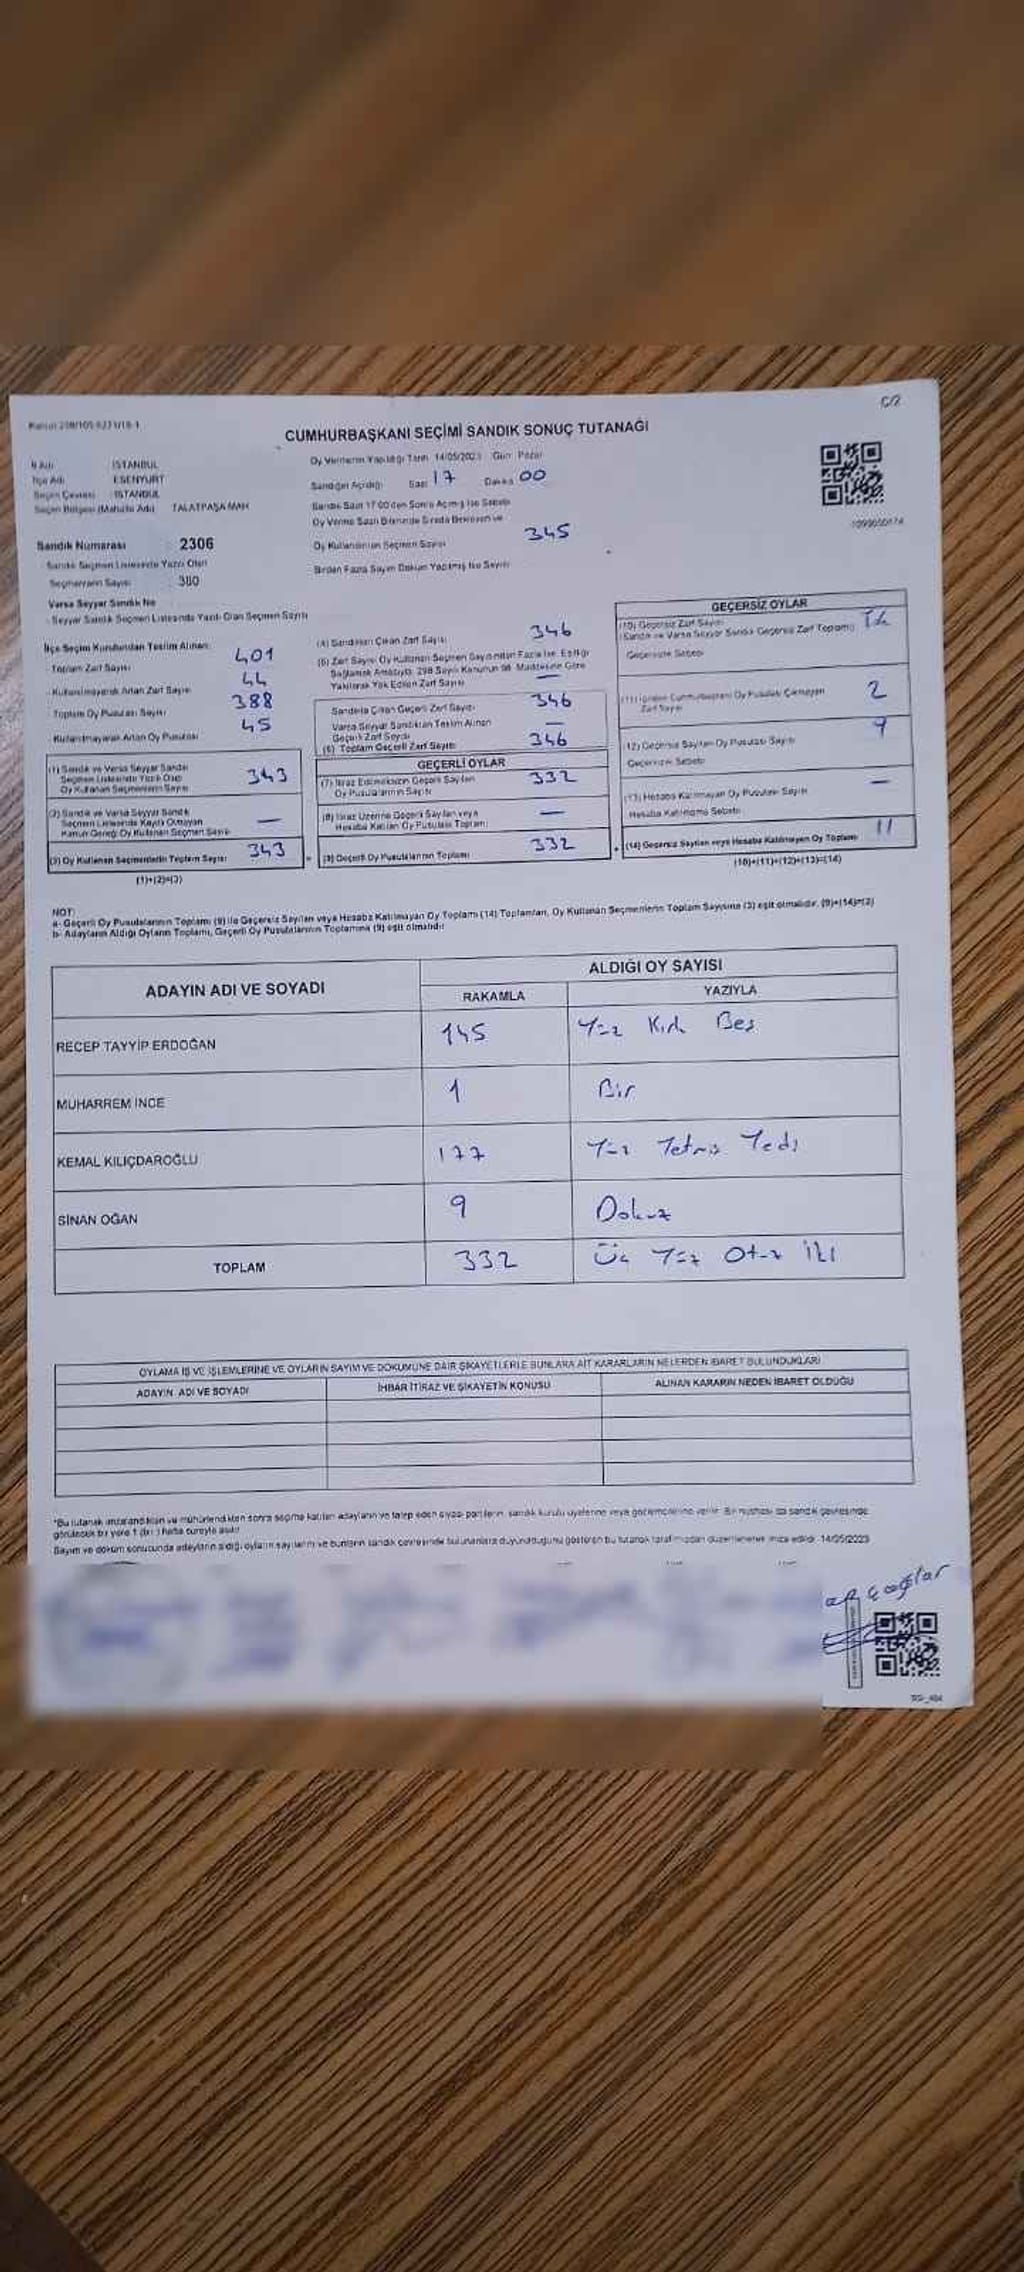 C/2
CUMHURBAŞKANI SEÇİMİ SANDIK SONUÇ TUTANAĞI
İl Adı İSTANBUL
İlçe Adı ESENYURT
Seçim Çevresi İSTANBUL
Seçim Bölgesi (Mahalle Adı) TALATPAŞA MAH
Sandık Numarası 2306
Sandık Seçmen Listesinde Yazılı Olan
Seçmenlerin Sayısı 380
Varsa Seyyar Sandık No
Seyyar Sandık Seçmen Listesinde Yazılı Olan Seçmen Sayısı
Oy Vermenin Yapıldığı Tarih 14/05/2023 Gün Pazar
Sandığın Açıldığı Saat 17 Dakika 00
Sandık Saat 17:00'den Sonra Açılmış İse Sebebi
Oy Verme Saati Bitiminde Sırada Bekleyen ve
Oy Kullandırılan Seçmen Sayısı 345
Birden Fazla Sayım Döküm Yapılmış İse Sayısı
İlçe Seçim Kurulundan Teslim Alınan
Toplam Zarf Sayısı 401
Kullanılmayarak Artan Zarf Sayısı 44
Toplam Oy Pusulası Sayısı 388
Kullanılmayarak Artan Oy Pusulası 45
(1) Sandık ve Varsa Seyyar Sandık
Seçmen Listesinde Yazılı Olup
Oy Kullanan Seçmenlerin Sayısı 343
(2) Sandık ve Varsa Seyyar Sandık
Seçmen Listesinde Kayıtlı Olmayan
Kanun Gereği Oy Kullanan Seçmen Sayısı —
(3) Oy Kullanan Seçmenlerin Toplam Sayısı 343
(1)+(2)=(3)
(4) Sandıktan Çıkan Zarf Sayısı 346
(5) Zarf Sayısı Oy Kullanan Seçmen Sayısından Fazla İse, Eşitliği
Sağlamak Amacıyla, 298 Sayılı Kanunun 98. Maddesine Göre
Yakılarak Yok Edilen Zarf Sayısı —
Sandıkta Çıkan Geçerli Zarf Sayısı 346
Varsa Seyyar Sandıktan Teslim Alınan
Geçerli Zarf Sayısı —
(6) Toplam Geçerli Zarf Sayısı 346
GEÇERLİ OYLAR
(7) İtiraz Edilmeksizin Geçerli Sayılan
Oy Pusulalarının Sayısı 332
(8) İtiraz Üzerine Geçerli Sayılan veya
Hesaba Katılan Oy Pusulası Toplamı —
(9) Geçerli Oy Pusulalarının Toplamı 332
GEÇERSİZ OYLAR
(10) Geçersiz Zarf Sayısı
(Sandık ve Varsa Seyyar Sandık Geçersiz Zarf Toplamı)
Geçersizlik Sebebi
(11) İçinden Cumhurbaşkanı Oy Pusulası Çıkmayan
Zarf Sayısı 2
(12) Geçersiz Sayılan Oy Pusulası Sayısı 9
Geçersizlik Sebebi
(13) Hesaba Katılmayan Oy Pusulası Sayısı —
Hesaba Katılmama Sebebi
(14) Geçersiz Sayılan veya Hesaba Katılmayan Oy Toplamı 11
(10)+(11)+(12)+(13)=(14)
NOT:
a- Geçerli Oy Pusulalarının Toplamı (9) ile Geçersiz Sayılan veya Hesaba Katılmayan Oy Toplamı (14) Toplamları, Oy Kullanan Seçmenlerin Toplam Sayısına (3) eşit olmalıdır. (9)+(14)=(3)
b- Adayların Aldığı Oyların Toplamı, Geçerli Oy Pusulalarının Toplamına (9) eşit olmalıdır
ADAYIN ADI VE SOYADI ALDIĞI OY SAYISI
RAKAMLA YAZIYLA
RECEP TAYYİP ERDOĞAN 145 Yüz Kırk Beş
MUHARREM İNCE 1 Bir
KEMAL KILIÇDAROĞLU 177 Yüz Yetmiş Yedi
SİNAN OĞAN 9 Dokuz
TOPLAM 332 Üç Yüz Otuz İki
OYLAMA İŞ VE İŞLEMLERİNE VE OYLARIN SAYIM VE DÖKÜMÜNE DAİR ŞİKAYETLERLE BUNLARA AİT KARARLARIN NELERDEN İBARET BULUNDUKLARI
ADAYIN ADI VE SOYADI İHBAR İTİRAZ VE ŞİKAYETİN KONUSU ALINAN KARARIN NEDEN İBARET OLDUĞU
*Bu tutanak imzalandıktan ve mühürlendikten sonra seçime katılan adayların ve talep eden siyasi partilerin, sandık kurulu üyelerine veya gözlemcilerine verilir. Bir nüshası da sandık çevresinde
görülecek bir yere 1 (bir) hafta süreyle asılır.
Sayım ve döküm sonucunda adayların aldığı oyların sayılarını ve bunların sandık çevresinde bulunanlara duyurulduğunu gösteren bu tutanak tarafımızdan düzenlenerek imza edildi. 14/05/2023
çağlar